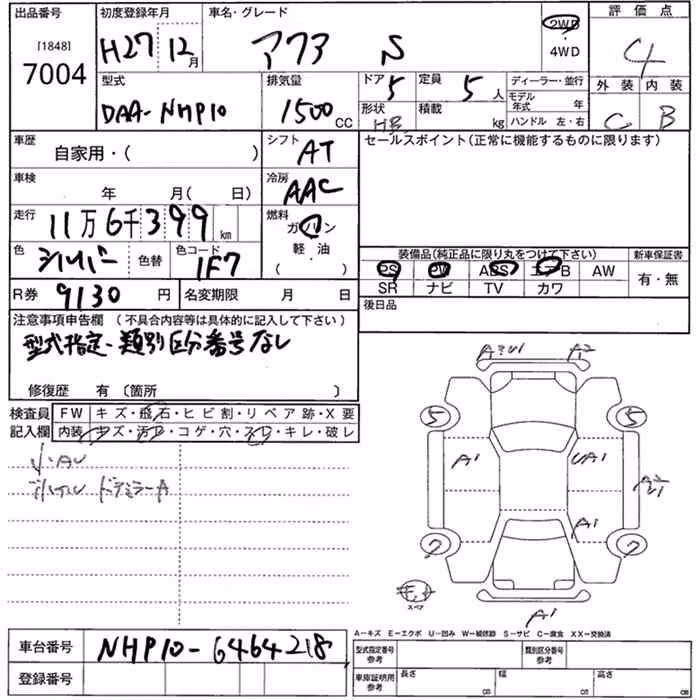 出品番号 初度登録年月 車名・グレード 評価点
[1848]
7004
H27 12月
アクア S
2WD
・
4WD
4
型式 排気量 ドア 定員 ディーラー・並行 外装 内装
DAA-NHP10 1500CC 5 5人
モデル年式 年
形状 積載 ハンドル 左・右
HB kg C B
車歴 シフト セールスポイント(正常に機能するものに限ります)
自家用・( ) AT
車検 冷房
年 月( 日) AAC
走行 燃料
11万6千399km ガソリン
・
軽・油
( )
色 色替 色コード
シルバー 1F7
装備品(純正品に限り丸をつけて下さい) 新車保証書
PS PW ABS エアB AW 有・無
SR ナビ TV カワ
R券 9130円 名変期限 月 日 後日品
注意事項申告欄 (不具合内容等は具体的に記入して下さい)
型式指定-類別区分番号なし
修復歴 有 〔箇所 〕
検査員 FW キズ・飛石・ヒビ割・リペア跡・X要
記入欄 内装 キズ・汚レ・コゲ・穴・スレ・キレ・破レ
A2
5 5
A1 UA1
A2
A1
7 7
スペア
A1
A-キズ E-エクボ U-凹み W-補修跡 S-サビ C-腐食 XX-交換済
車台番号 NHP10-6464218
登録番号
型式指定番号 参考 類別区分番号 参考
車庫証明用 参考 長さ cm 幅 cm 高さ cm